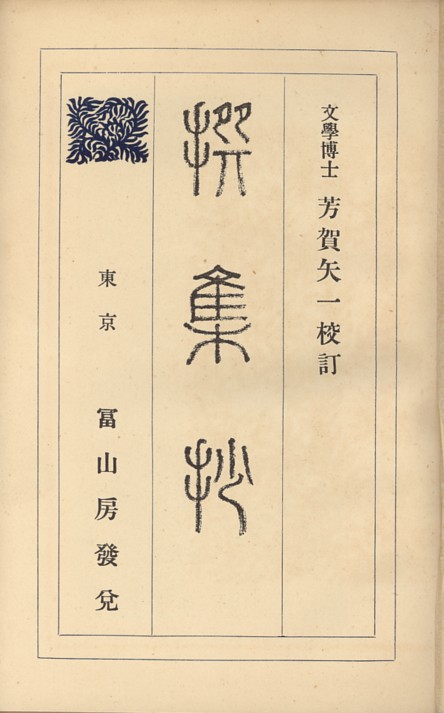 文學博士 芳賀矢一校訂
撰集抄
東京 冨山房發兌